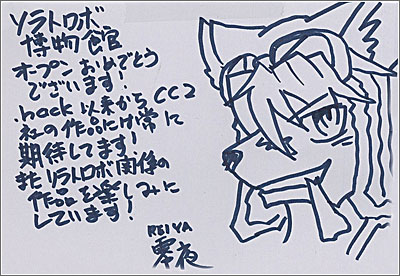 ソラトロボ
博物館
オープンおめでとう
ございます!
.hack以来からCC2
社の作品にけ常に
期待してます!
またソラトロボ関係の
作品を楽しみに
しています!
REIYA
零夜